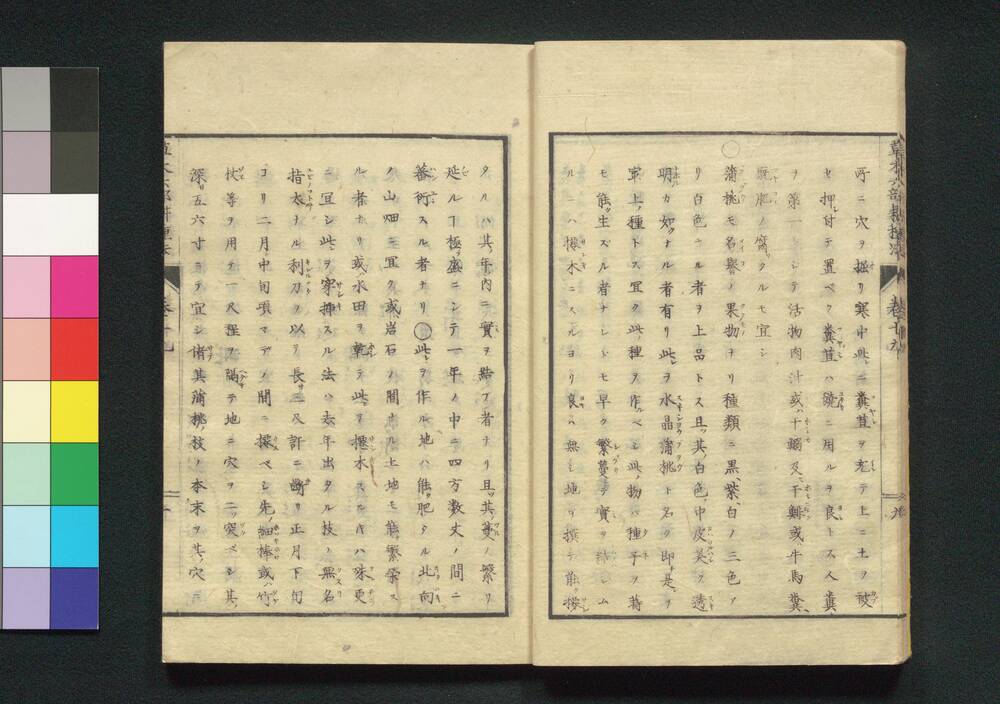 草木六部耕種法
巻十九
所ニ穴ヲ掘リ寒中此ニ糞苴ヲ充テ上ニ土ヲ被
セ押付テ置ベク糞苴ハ饒ニ用ルヲ良トス人糞
ヲ第一トシテ活物肉汁或ハ干鰯及ヒ干鯡或牛馬糞
厩肥ノ腐タルモ宜シ
○蒲桃モ名譽ノ果物ナリ種類ニ黒紫白ノ三色ア
リ白色ナル者ヲ上品トス且其白色ノ中皮美ク透
明カ如クナル者有リ此ヲ水晶蒲桃ト名ク即是ヲ
第上種トス宜ク此種ヲ作ベシ此物ハ種子ヲ蒔
モ能生ズル者ナレドモ早ク繁蔓テ實ヲ結シム
ルニハ揷木ニスルヨリ良ハ無シ地ヲ撰テ能揷
タルハ其年内ニ實ヲ結ブ者ナリ且其蔓ノ繁リ
延ルヿ極盛ニシテ一年ノ中ニ四方数丈ノ間ニ
蕃衍スル者ナリ○此ヲ作ル地ハ能肥タル北向
ク山畑ニ宜ク或岩石ノ間ナル土地モ能繁榮ス
ル者ナリ或水田ヲ乾テ此ヲ揷木スルハ殊更
ニ宜シ此ヲ穿揷スル法ハ去年出タル枝ノ無名
指太ナル利刀ヲ以テ長二尺許ニ斷リ正月下旬
ヨリ二月中旬頃マデノ間ニ揷ベシ先細棒或ハ竹
杖等ヲ用テ一尺程ヲ隔テ地ニ穴ヲ二ツ突ベシ其
深サ五六寸ニテ宜シ偖其蒲桃枝ノ本末ヲ其穴ニ